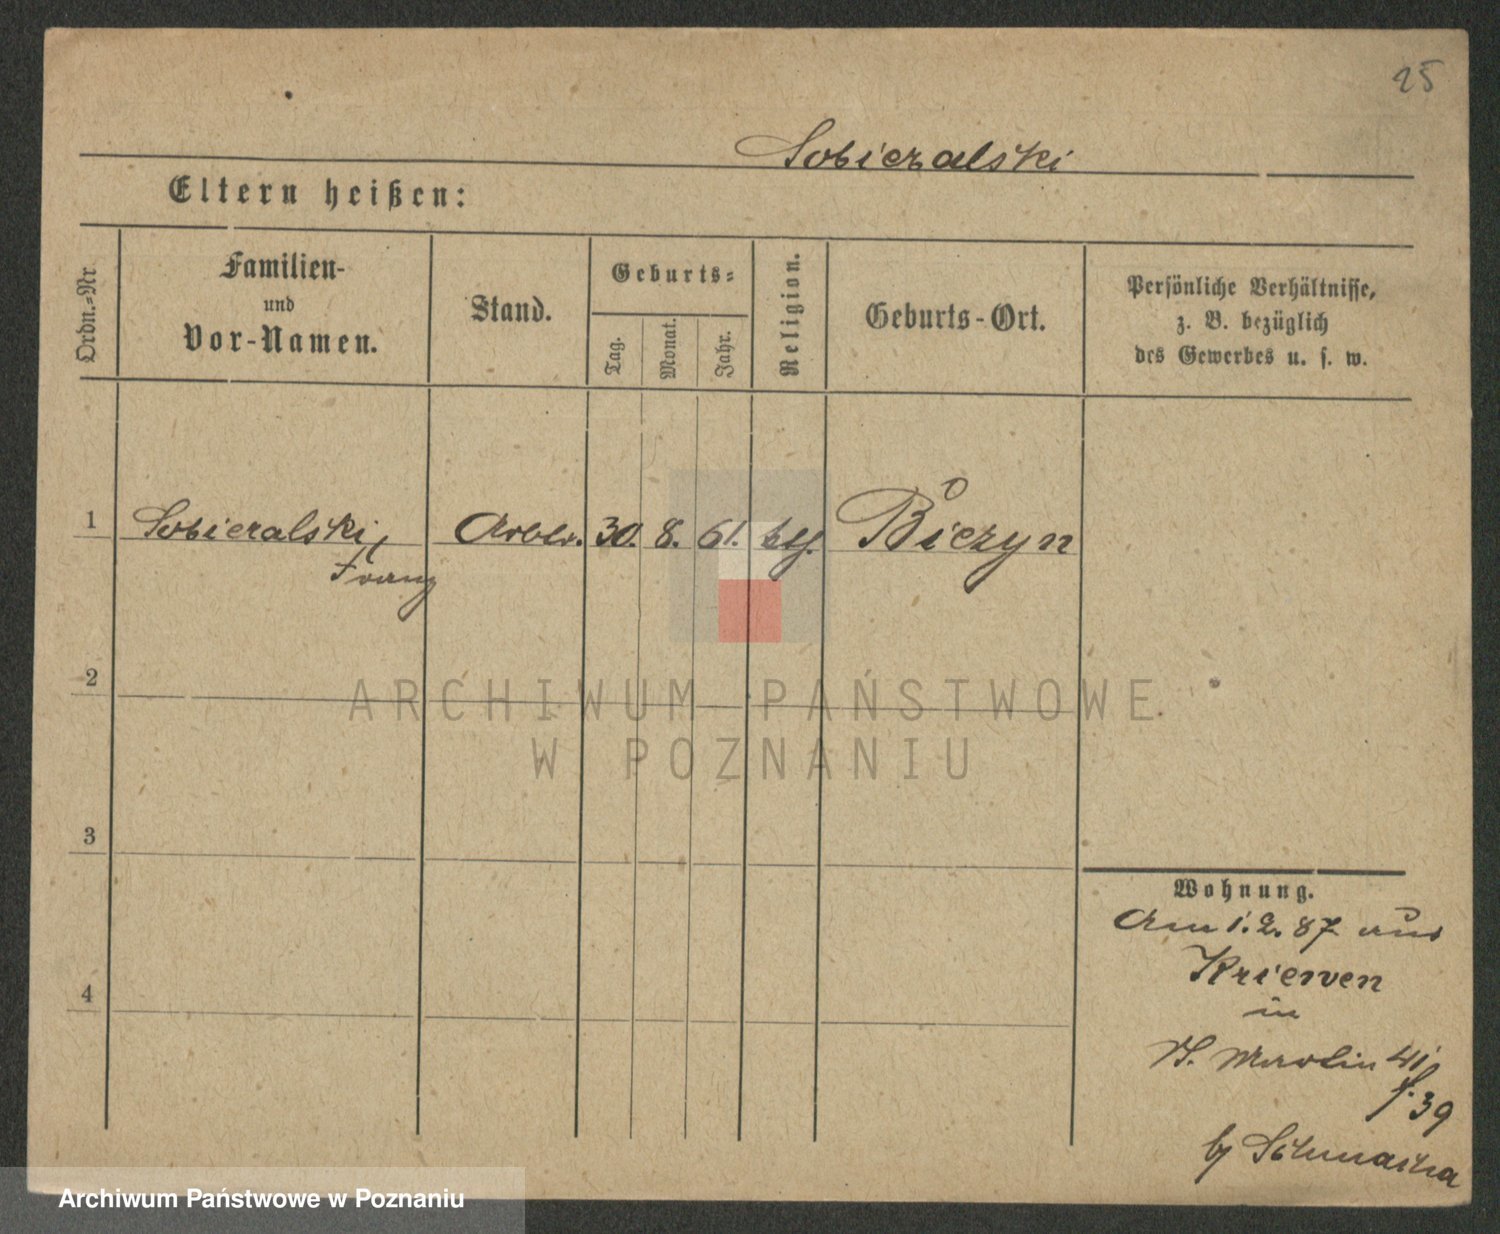 25
Sobieralski
Eltern heißen:
Ordn.=Nr.
Familien-
und
Vor-Namen.
Stand.
Geburts=
Tag.
Monat.
Jahr.
Religion.
Geburts-Ort.
Persönliche Verhältnisse,
z. B. bezüglich
des Gewerbes u. s. w.
1 Sobieralski, Arbtr. 30. 8. 61. Bieżyn
Franz
2
ARCHIWUM PAŃSTWOWE
W POZNANIU
3
4
Wohnung.
Am 1. 2. 87 aus
Kriewen
in
St. Martin 41
f. 39
by
Archiwum Państwowe w Poznaniu